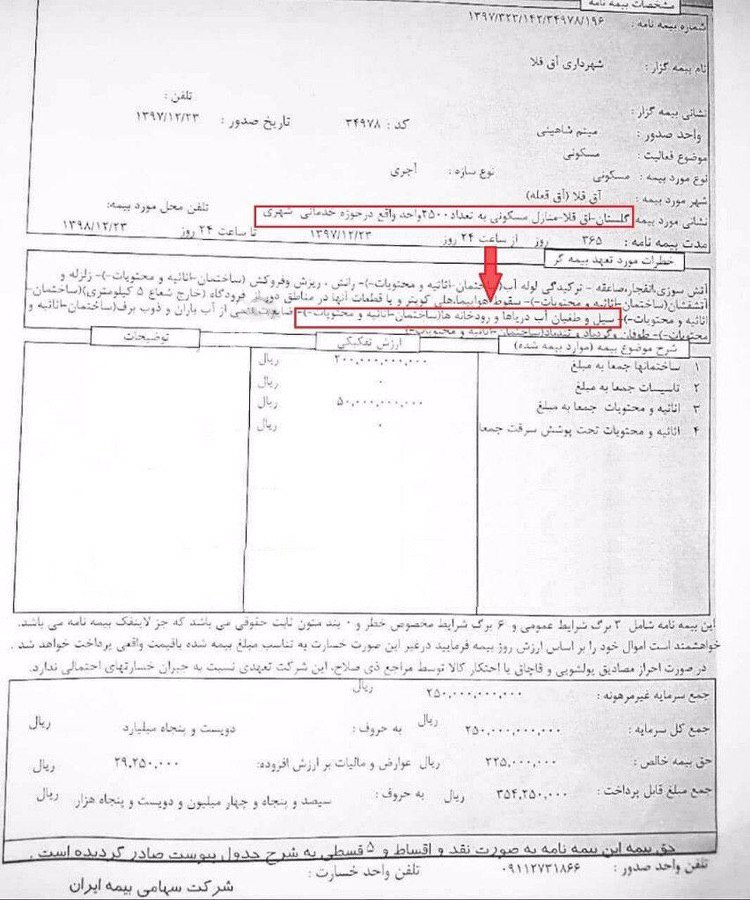 مشخصات بیمه نامه
شماره بیمه نامه : ۱۳۹۷/۳۲۳/۱۴۲/۳۴۹۷۸/۱۹۶
نام بیمه گزار : شهرداری آق قلا
نشانی بیمه گزار : تلفن :
واحد صدور : میثم شاهینی کد : ۳۴۹۷۸ تاریخ صدور : ۱۳۹۷/۱۲/۲۳
موضوع فعالیت : مسکونی
نوع مورد بیمه : مسکونی نوع سازه : آجری
شهر مورد بیمه : آق قلا (آق قعله)
نشانی مورد بیمه گلستان-اق قلا-منازل مسکونی به تعداد۲۵۰۰واحد واقع درحوزه خدماتی شهری تلفن محل مورد بیمه:
مدت بیمه نامه : ۳۶۵ روز از ساعت ۲۴ روز ۱۳۹۷/۱۲/۲۳ تا ساعت ۲۴ روز ۱۳۹۸/۱۲/۲۳
خطرات مورد تعهد بیمه گر
آتش سوزی،انفجار،صاعقه - ترکیدگی لوله آب(ساختمان-اثاثیه و محتویات-)- رانش ، ریزش وفروکش (ساختمان-اثاثیه و محتویات-)- زلزله و
آتشفشان(ساختمان-اثاثیه و محتویات-)- سقوط هواپیما،هلی کوپتر و یا قطعات آنها در مناطق دور از فرودگاه (خارج شعاع ۵ کیلومتری)(ساختمان-
اثاثیه و محتویات-)- سیل و طغیان آب دریاها و رودخانه ها(ساختمان-اثاثیه و محتویات-)- ضایعات ناشی از آب باران و ذوب برف(ساختمان-اثاثیه و
محتویات-)- طوفان وگردباد و تندباد(ساختمان-اثاثیه و محتویات-)
شرح موضوع بیمه (موارد بیمه شده) ارزش تفکیکی توضیحات
۱ ساختمانها جمعا به مبلغ ۲۰۰,۰۰۰,۰۰۰,۰۰۰ ریال
۲ تاسیسات جمعا به مبلغ ۰ ریال
۳ اثاثیه و محتویات جمعا به مبلغ ۵۰,۰۰۰,۰۰۰,۰۰۰ ریال
۴ اثاثیه و محتویات تحت پوشش سرقت جمعا ۰ ریال
این بیمه نامه شامل ۳ برگ شرایط عمومی و ۶ برگ شرایط مخصوص خطر و ۰ بند متون ثابت حقوقی می باشد که جز لاینفک بیمه نامه می باشد.
خواهشمند است اموال خود را بر اساس ارزش روز بیمه فرمایید درغیر این صورت خسارت به تناسب مبلغ بیمه شده باقیمت واقعی پرداخت خواهد شد .
در صورت احراز مصادیق پولشویی و قاچاق یا احتکار کالا توسط مراجع ذی صلاح، این شرکت تعهدی نسبت به جبران خسارتهای احتمالی ندارد.
جمع سرمایه غیرمرهونه : ۲۵۰,۰۰۰,۰۰۰,۰۰۰ ریال
جمع کل سرمایه : ۲۵۰,۰۰۰,۰۰۰,۰۰۰ ریال به حروف : دویست و پنجاه میلیارد ریال
حق بیمه خالص : ۳۲۵,۰۰۰,۰۰۰ ریال عوارض و مالیات بر ارزش افزوده: ۲۹,۲۵۰,۰۰۰ ریال
جمع مبلغ قابل پرداخت : ۳۵۴,۲۵۰,۰۰۰ ریال به حروف : سیصد و پنجاه و چهار میلیون و دویست و پنجاه هزار ریال
حق بیمه این بیمه نامه به صورت نقد و اقساط و ۵ قسطی به شرح جدول پیوست صادر گردیده است .
تلفن واحد صدور : ۰۹۱۱۲۷۳۱۸۶۶ تلفن واحد خسارت :
شرکت سهامی بیمه ایران